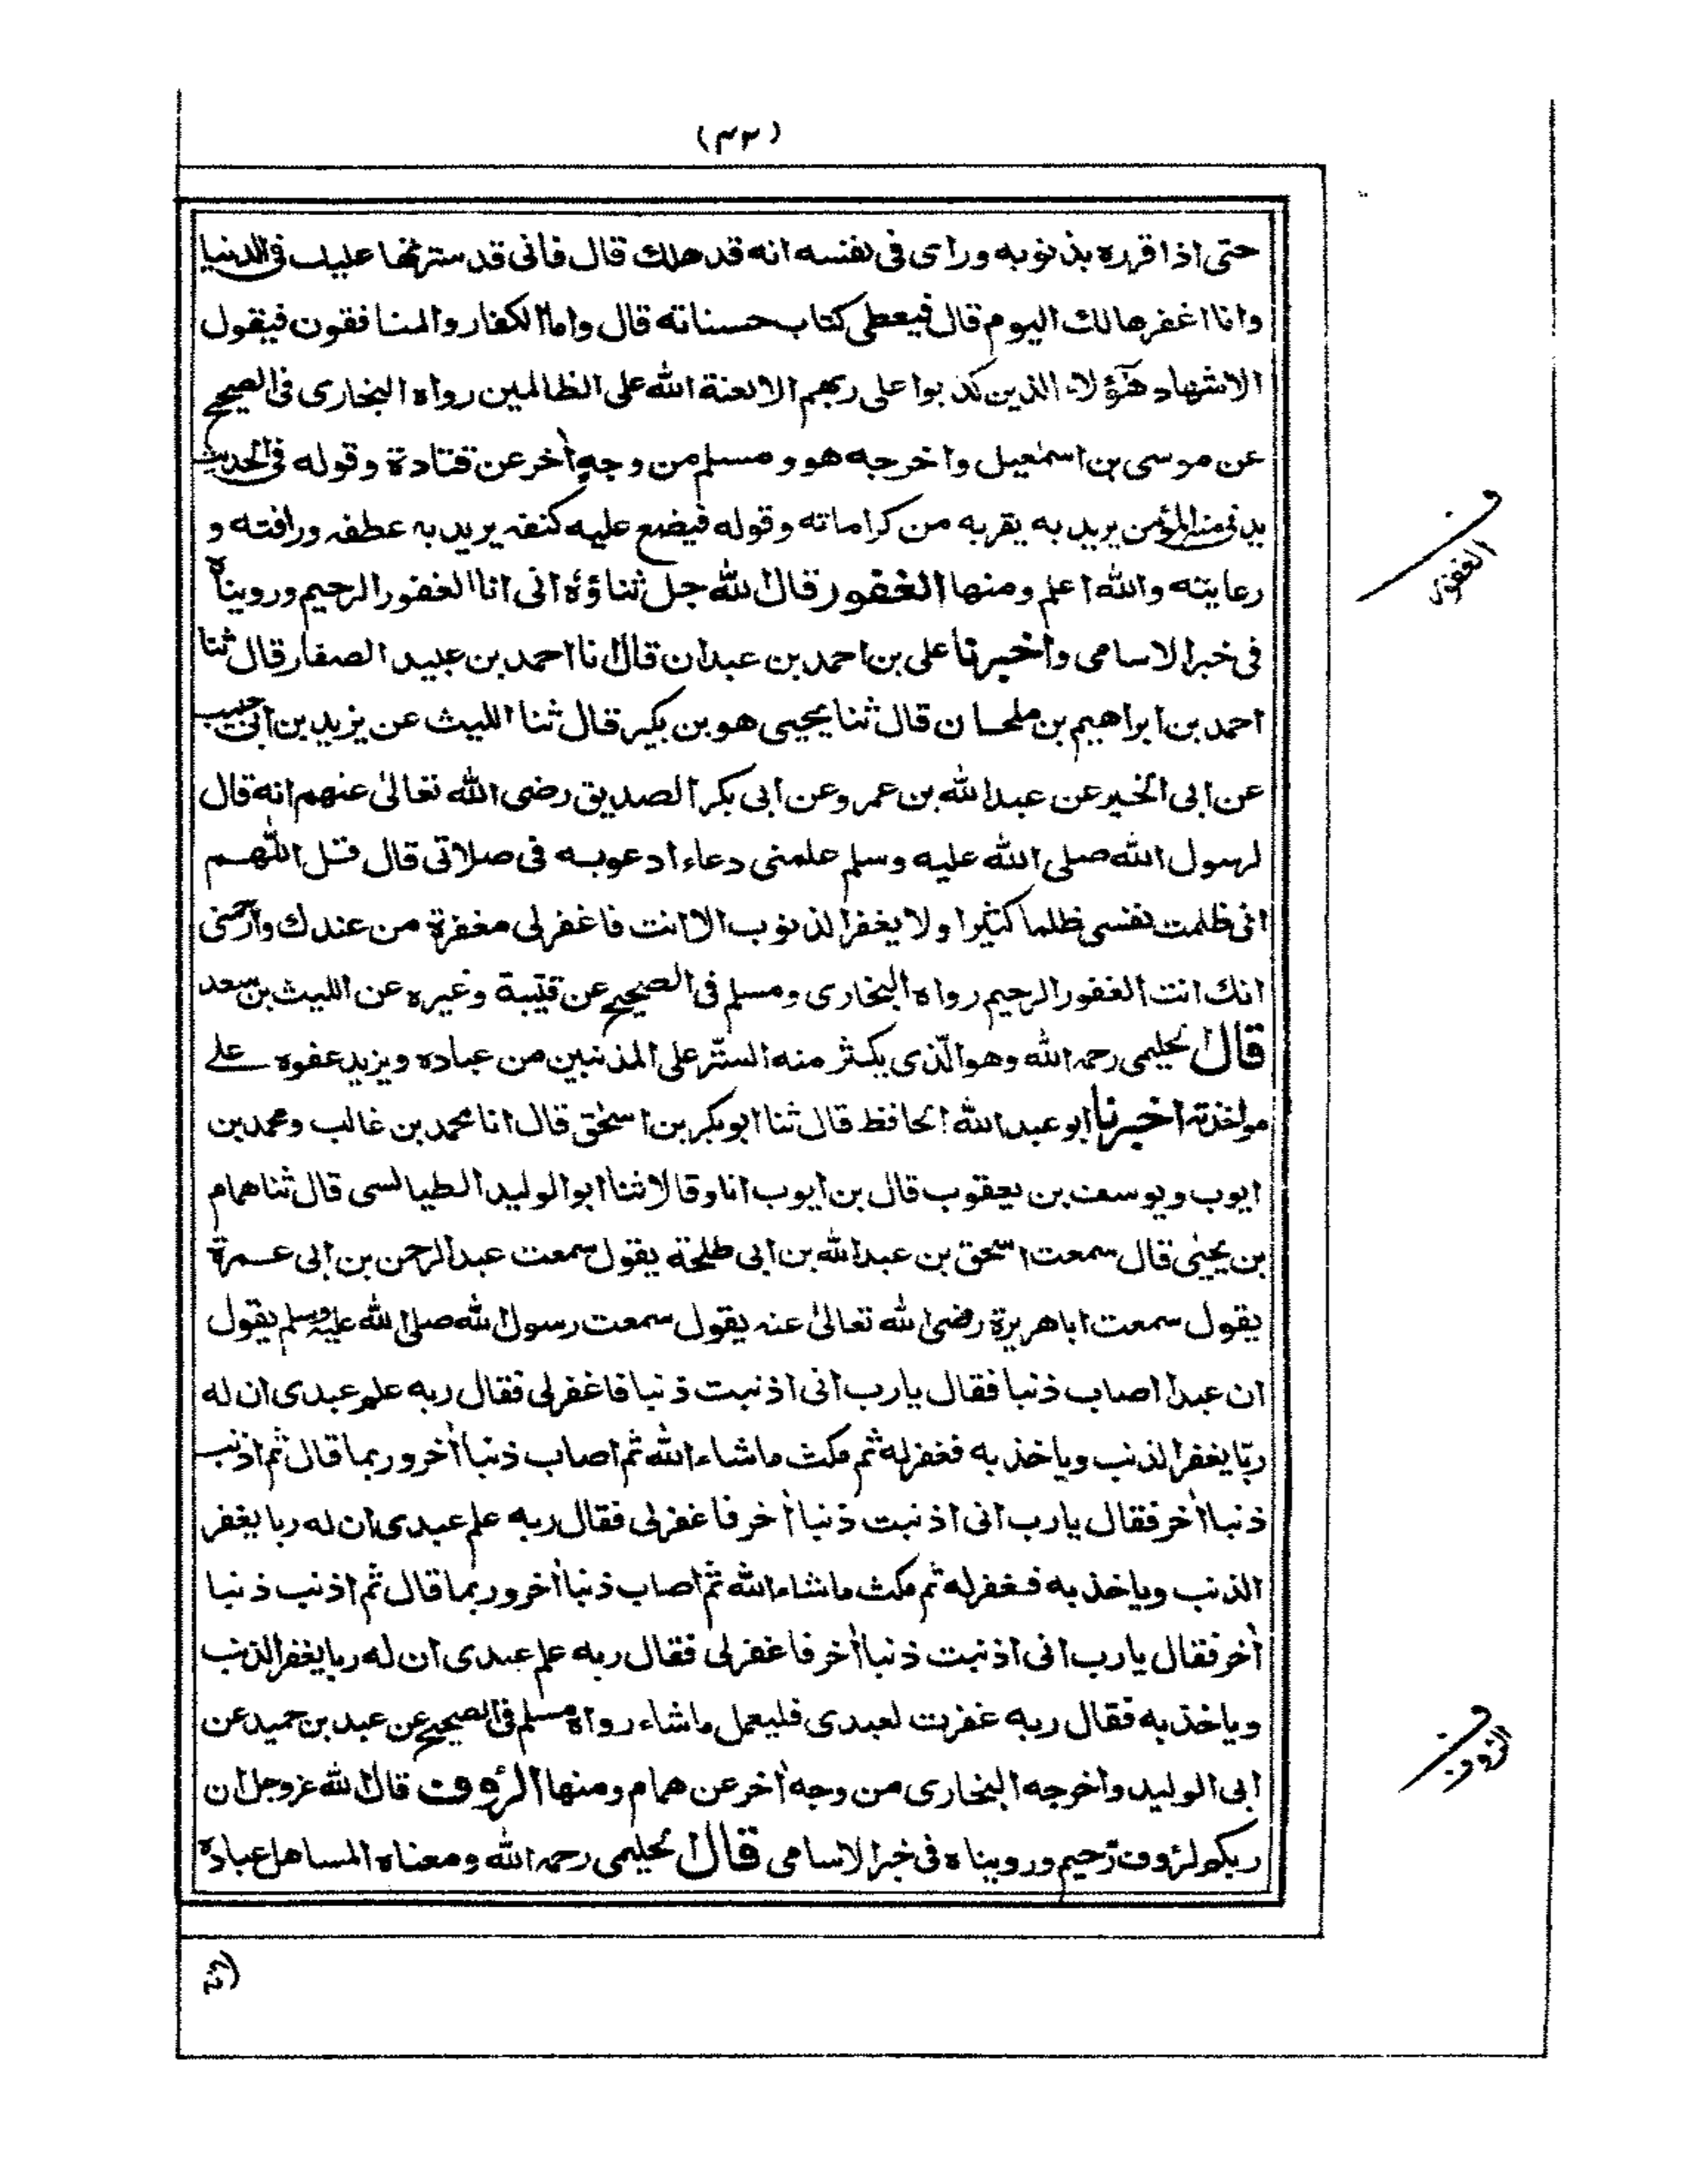 (٤٢)
حتى اذا قرره بذنوبه وراى فى نفسه انه قد هلك قال فانى قد سترتها عليك فى الدنيا
وانا اغفرها لك اليوم قال فيعطى كتاب حسناته قال واما الكفار والمنافقون فيقول
الاشهاد هٓؤلاء الذين كذبوا على ربهم الا لعنة الله على الظالمين رواه البخارى فى الصحيح
عن موسى بن اسمٰعيل واخرجه هو ومسلم من وجهٍ اٰخر عن قتادة وقوله فى الحديث
يدنى منه المؤمن يريد به يقربه من كراماته وقوله فيضع عليه كنفه يريد به عطفه ورافته و
رعايته والله اعلم ومنها الغفور قال الله جل ثناؤهٗ انى انا الغفور الرحيم ورويناه
فى خبر الاسامى واخبرنا على بن احمد بن عبدان قال انا احمد بن عبيد الصفار قال ثنا
احمد بن ابراهيم بن ملحان قال ثنا يحيى هو بن بكير قال ثنا الليث عن يزيد بن ابى حبيب
عن ابى الخير عن عبد الله بن عمرو عن ابى بكر الصديق رضى الله تعالىٰ عنهم انه قال
لرسول الله صلى الله عليه وسلم علمنى دعاء ادعو به فى صلاتى قال قل اللّٰهم
انى ظلمت نفسى ظلما كثيرا ولا يغفر الذنوب الا انت فاغفر لى مغفرة من عندك وارحمنى
انك انت الغفور الرحيم رواه البخارى ومسلم فى الصحيح عن قتيبة وغيره عن الليث بن سعد
قال الحليمى رحمه الله وهو الّذى يكثر منه السّتر على المذنبين من عباده ويزيد عفوه على
مواخذته اخبرنا ابو عبد الله الحافظ قال ثنا ابو بكر بن اسحٰق قال انا محمد بن غالب ومحمد بن
ايوب ويوسف بن يعقوب قال بن ايوب انا وقالا ثنا ابو الوليد الطيالسى قال ثنا همام
بن يحيىٰ قال سمعت اسحٰق بن عبد الله بن ابى طلحة يقول سمعت عبد الرحمن بن ابى عمرة
يقول سمعت ابا هريرة رضى الله تعالىٰ عنه يقول سمعت رسول الله صلى الله عليه وسلم يقول
ان عبدا اصاب ذنبا فقال يا رب انى اذنبت ذنبا فاغفر لى فقال ربه علم عبدى ان له
ربّا يغفر الذنب وياخذ به فغفر له ثم مكث ما شاء الله ثم اصاب ذنبا اٰخر وربما قال ثم اذنب
ذنبا اٰخر فقال يا رب انى اذنبت ذنبا اٰخر فاغفر لى فقال ربه علم عبدى ان له ربا يغفر
الذنب وياخذ به فغفر له ثم مكث ما شاء الله ثم اصاب ذنبا اٰخر وربما قال ثم اذنب ذنبا
اٰخر فقال يا رب انى اذنبت ذنبا اٰخر فاغفر لى فقال ربه علم عبدى ان له ربا يغفر الذنب
وياخذ به فقال ربه غفرت لعبدى فليعمل ما شاء رواه مسلم فى الصحيح عن عبد بن حميد عن
ابى الوليد واخرجه البخارى من وجه اٰخر عن همام ومنها الرؤوف قال الله عز وجل ان
ربكم لرؤوف رّحيم ورويناه فى خبر الاسامى قال الحليمى رحمه الله ومعناه المساهل عباده
ف الغفور
ف الرؤوف